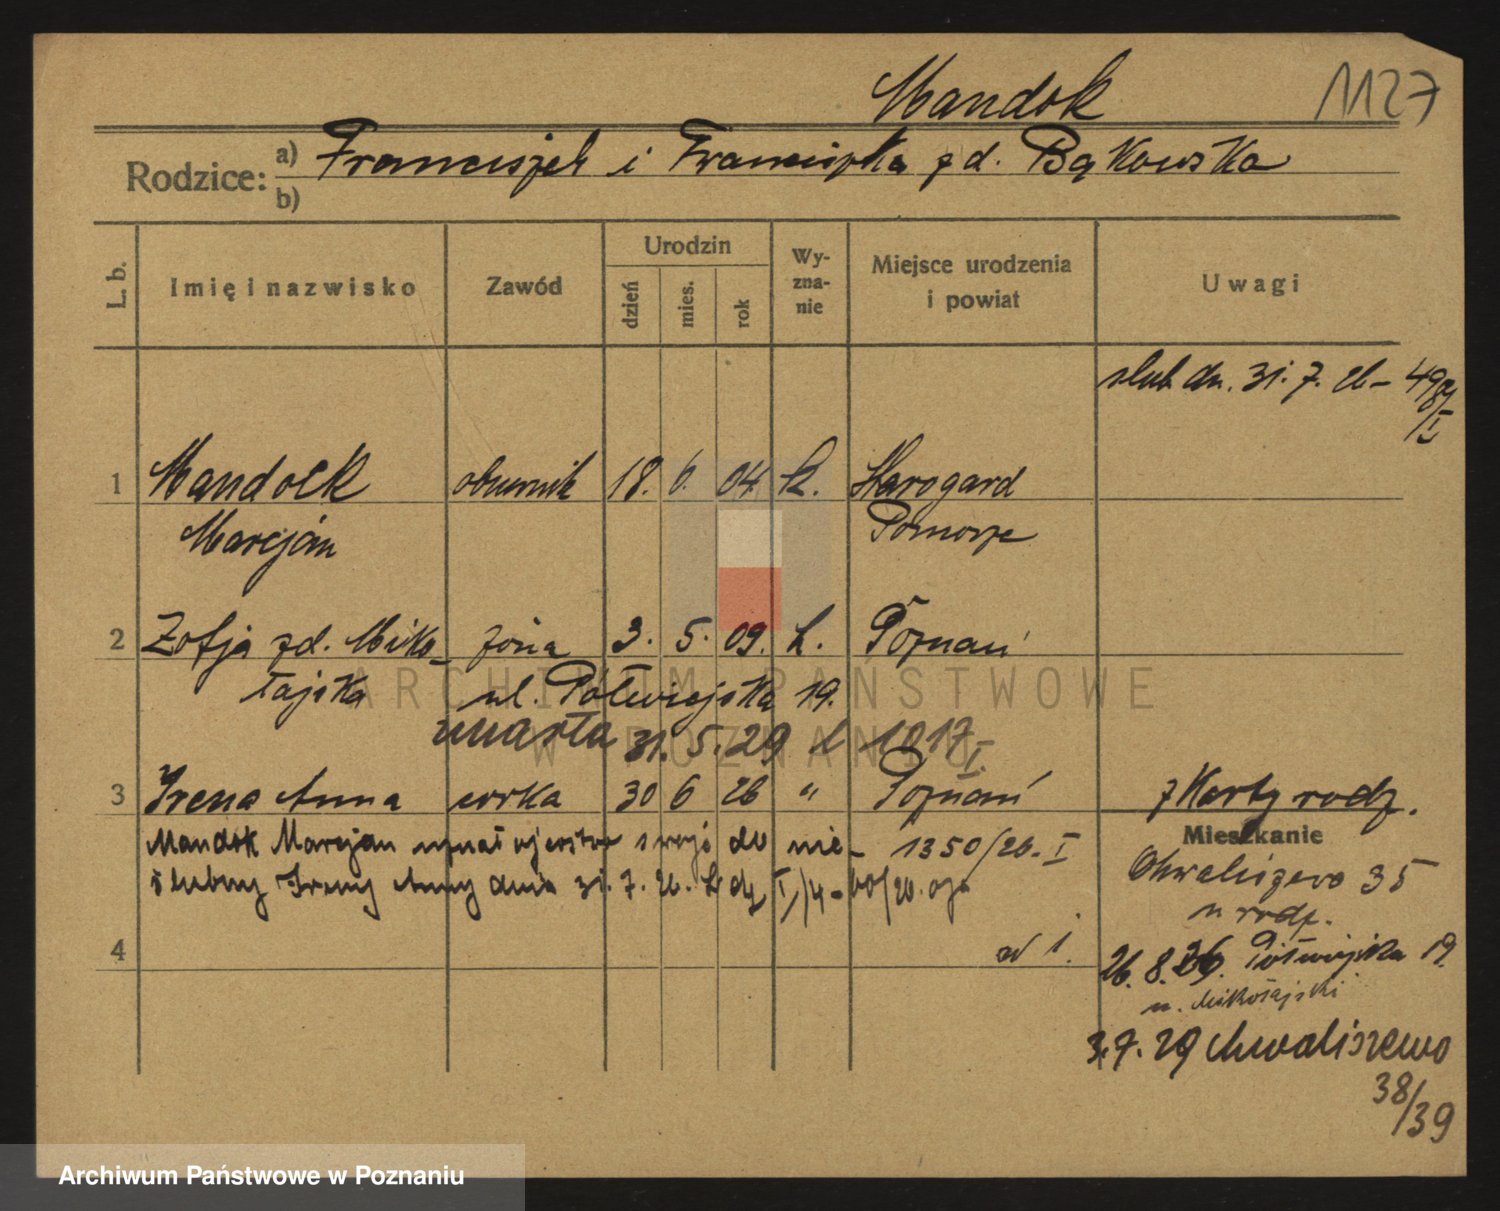 Mandok 1127
Rodzice: a) Franciszek i Franciszka zd. Bąkowska
b)
L. b. Imię i nazwisko Zawód Urodzin dzień mies. rok Wyznanie Miejsce urodzenia i powiat Uwagi
ślub dn. 31. 7. 26 -
1 Mandock 18. 6. 04. k. Starogard
Marcjan Pomorze
2 Zofja zd. Miko- żona 3. 5. 09. k. Poznań
łajska ul. Półwiejska 19.
ARCHIWUM PAŃSTWOWE
W POZNANIU
umarła 31. 5. 29 1017 I.
3 Irena Anna córka 30 6 26 " Poznań z Karty rodz.
Mandok Marcjan uznał ojcostwo swoje do nie- 1350/26. I
ślubnej Ireny Anny dnia 31. 7. 26.
Mieszkanie
Chwaliszewo 35
u rodz.
4 ad 1.
26. 8. 26. Półwiejska 19.
u. Mikołajski
3. 7. 29 Chwaliszewo
38/39
Archiwum Państwowe w Poznaniu